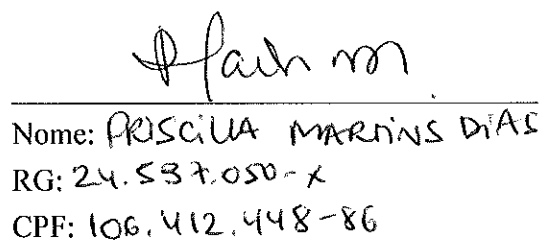 Nome: PRISCILLA MARTINS DIAS
RG: 24.537.050-X
CPF: 106.412.448-86